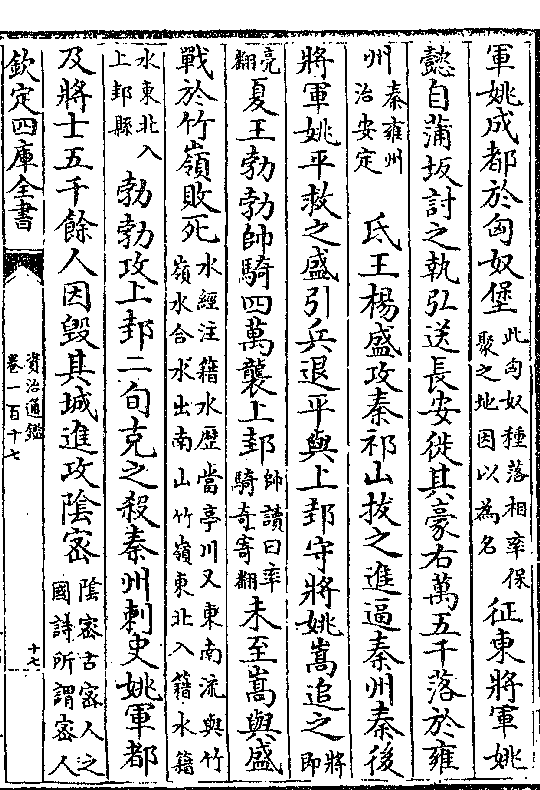 軍姚成都於匈奴堡此匈奴種落相率保聚之地因以為名征東將軍姚
懿自蒲坂討之執弘送長安徙其豪右萬五千落於雍
州秦雍州治安定氐王楊盛攻秦祁山拔之進逼秦州秦後
將軍姚平救之盛引兵退平與上邽守將姚嵩追之將即
亮翻夏王勃勃帥騎四萬襲上邽帥讀曰率騎奇寄翻未至嵩與盛
戰於竹嶺敗死水經注籍水歷當亭川又東南流與竹嶺水合水出南山竹嶺東北入籍水籍
水東北入上邽縣勃勃攻上邽二旬克之殺秦州刺史姚軍都
及將士五千餘人因毀其城進攻陰密陰密古密人之國詩所謂密人
欽定四庫全書
資治通鑑
卷一百十七
十七